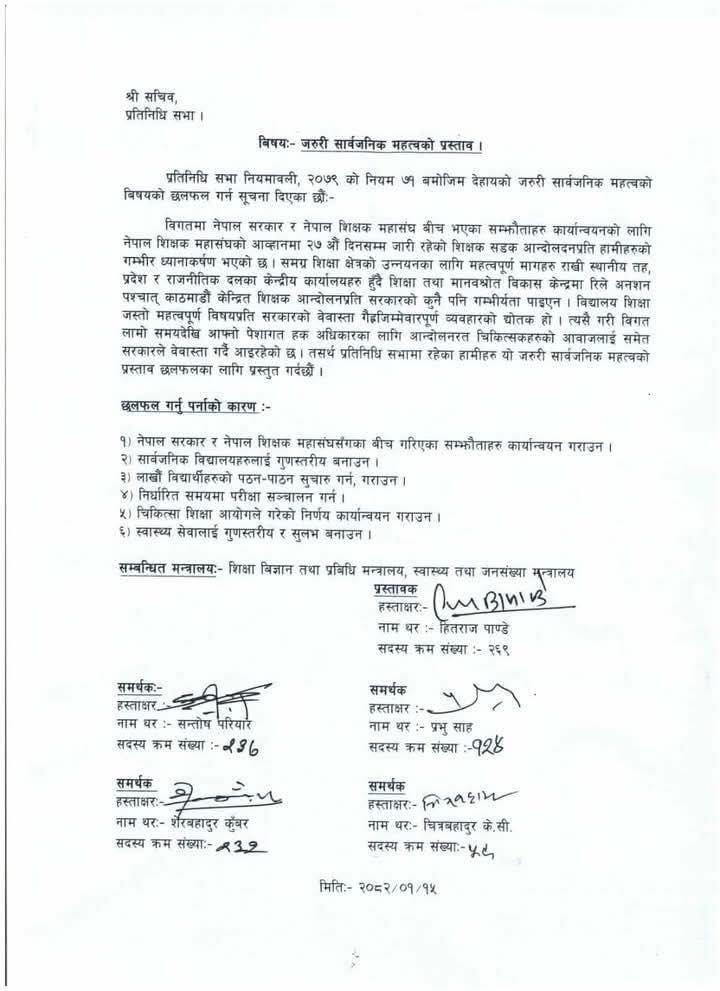 श्री सचिव,
प्रतिनिधि सभा ।
बिषयः- जरुरी सार्वजनिक महत्वको प्रस्ताव ।
प्रतिनिधि सभा नियमावली, २०७९ को नियम ७१ बमोजिम देहायको जरुरी सार्वजनिक महत्वको
बिषयको छलफल गर्न सूचना दिएका छौंः-
विगतमा नेपाल सरकार र नेपाल शिक्षक महासंघ बीच भएका सम्झौताहरु कार्यान्वयनको लागि
नेपाल शिक्षक महासंघको आव्हानमा २७ औं दिनसम्म जारी रहेको शिक्षक सडक आन्दोलदनप्रति हामीहरुको
गम्भीर ध्यानाकर्षण भएको छ । समग्र शिक्षा क्षेत्रको उन्नयनका लागि महत्वपूर्ण मागहरु राखी स्थानीय तह,
प्रदेश र राजनीतिक दलका केन्द्रीय कार्यालयहरु हुँदै शिक्षा तथा मानवश्रोत विकास केन्द्रमा रिले अनशन
पश्चात् काठमाडौं केन्द्रित शिक्षक आन्दोलनप्रति सरकारको कुनै पनि गम्भीर्यता पाइएन । विद्यालय शिक्षा
जस्तो महत्वपूर्ण विषयप्रति सरकारको वेवास्ता गैह्रजिम्मेवारपूर्ण व्यवहारको द्योतक हो । त्यसै गरी विगत
लामो समयदेखि आफ्नो पेशागत हक अधिकारका लागि आन्दोलनरत चिकित्सकहरुको आवाजलाई समेत
सरकारले वेवास्ता गर्दै आइरहेको छ । तसर्थ प्रतिनिधि सभामा रहेका हामीहरु यो जरुरी सार्वजनिक महत्वको
प्रस्ताव छलफलका लागि प्रस्तुत गर्दछौं ।
छलफल गर्नु पर्नाको कारण :-
१) नेपाल सरकार र नेपाल शिक्षक महासंघसँगका बीच गरिएका सम्झौताहरु कार्यान्वयन गराउन ।
२) सार्वजनिक विद्यालयहरुलाई गुणस्तरीय बनाउन ।
३) लाखौं विद्यार्थीहरुको पठन-पाठन सुचारु गर्न, गराउन ।
४) निर्धारित समयमा परीक्षा सञ्चालन गर्न ।
५) चिकित्सा शिक्षा आयोगले गरेको निर्णय कार्यान्वयन गराउन ।
६) स्वास्थ्य सेवालाई गुणस्तरीय र सुलभ बनाउन ।
सम्बन्धित मन्त्रालयः- शिक्षा विज्ञान तथा प्रबिधि मन्त्रालय, स्वास्थ्य तथा जनसंख्या मन्त्रालय
प्रस्तावक
हस्ताक्षरः-
नाम थर :- हितराज पाण्डे
सदस्य क्रम संख्या :- २६९
समर्थकः-
हस्ताक्षर :-
नाम थर :- सन्तोष परियार
सदस्य क्रम संख्या :- २३६
समर्थक
हस्ताक्षर :-
नाम थर :- प्रभु साह
सदस्य क्रम संख्या :- १२४
समर्थक
हस्ताक्षरः-
नाम थरः- शेरबहादुर कुँवर
सदस्य क्रम संख्याः- २३२
समर्थक
हस्ताक्षरः-
नाम थरः- चित्रबहादुर के.सी.
सदस्य क्रम संख्याः-
मितिः- २०८२/०१/१५